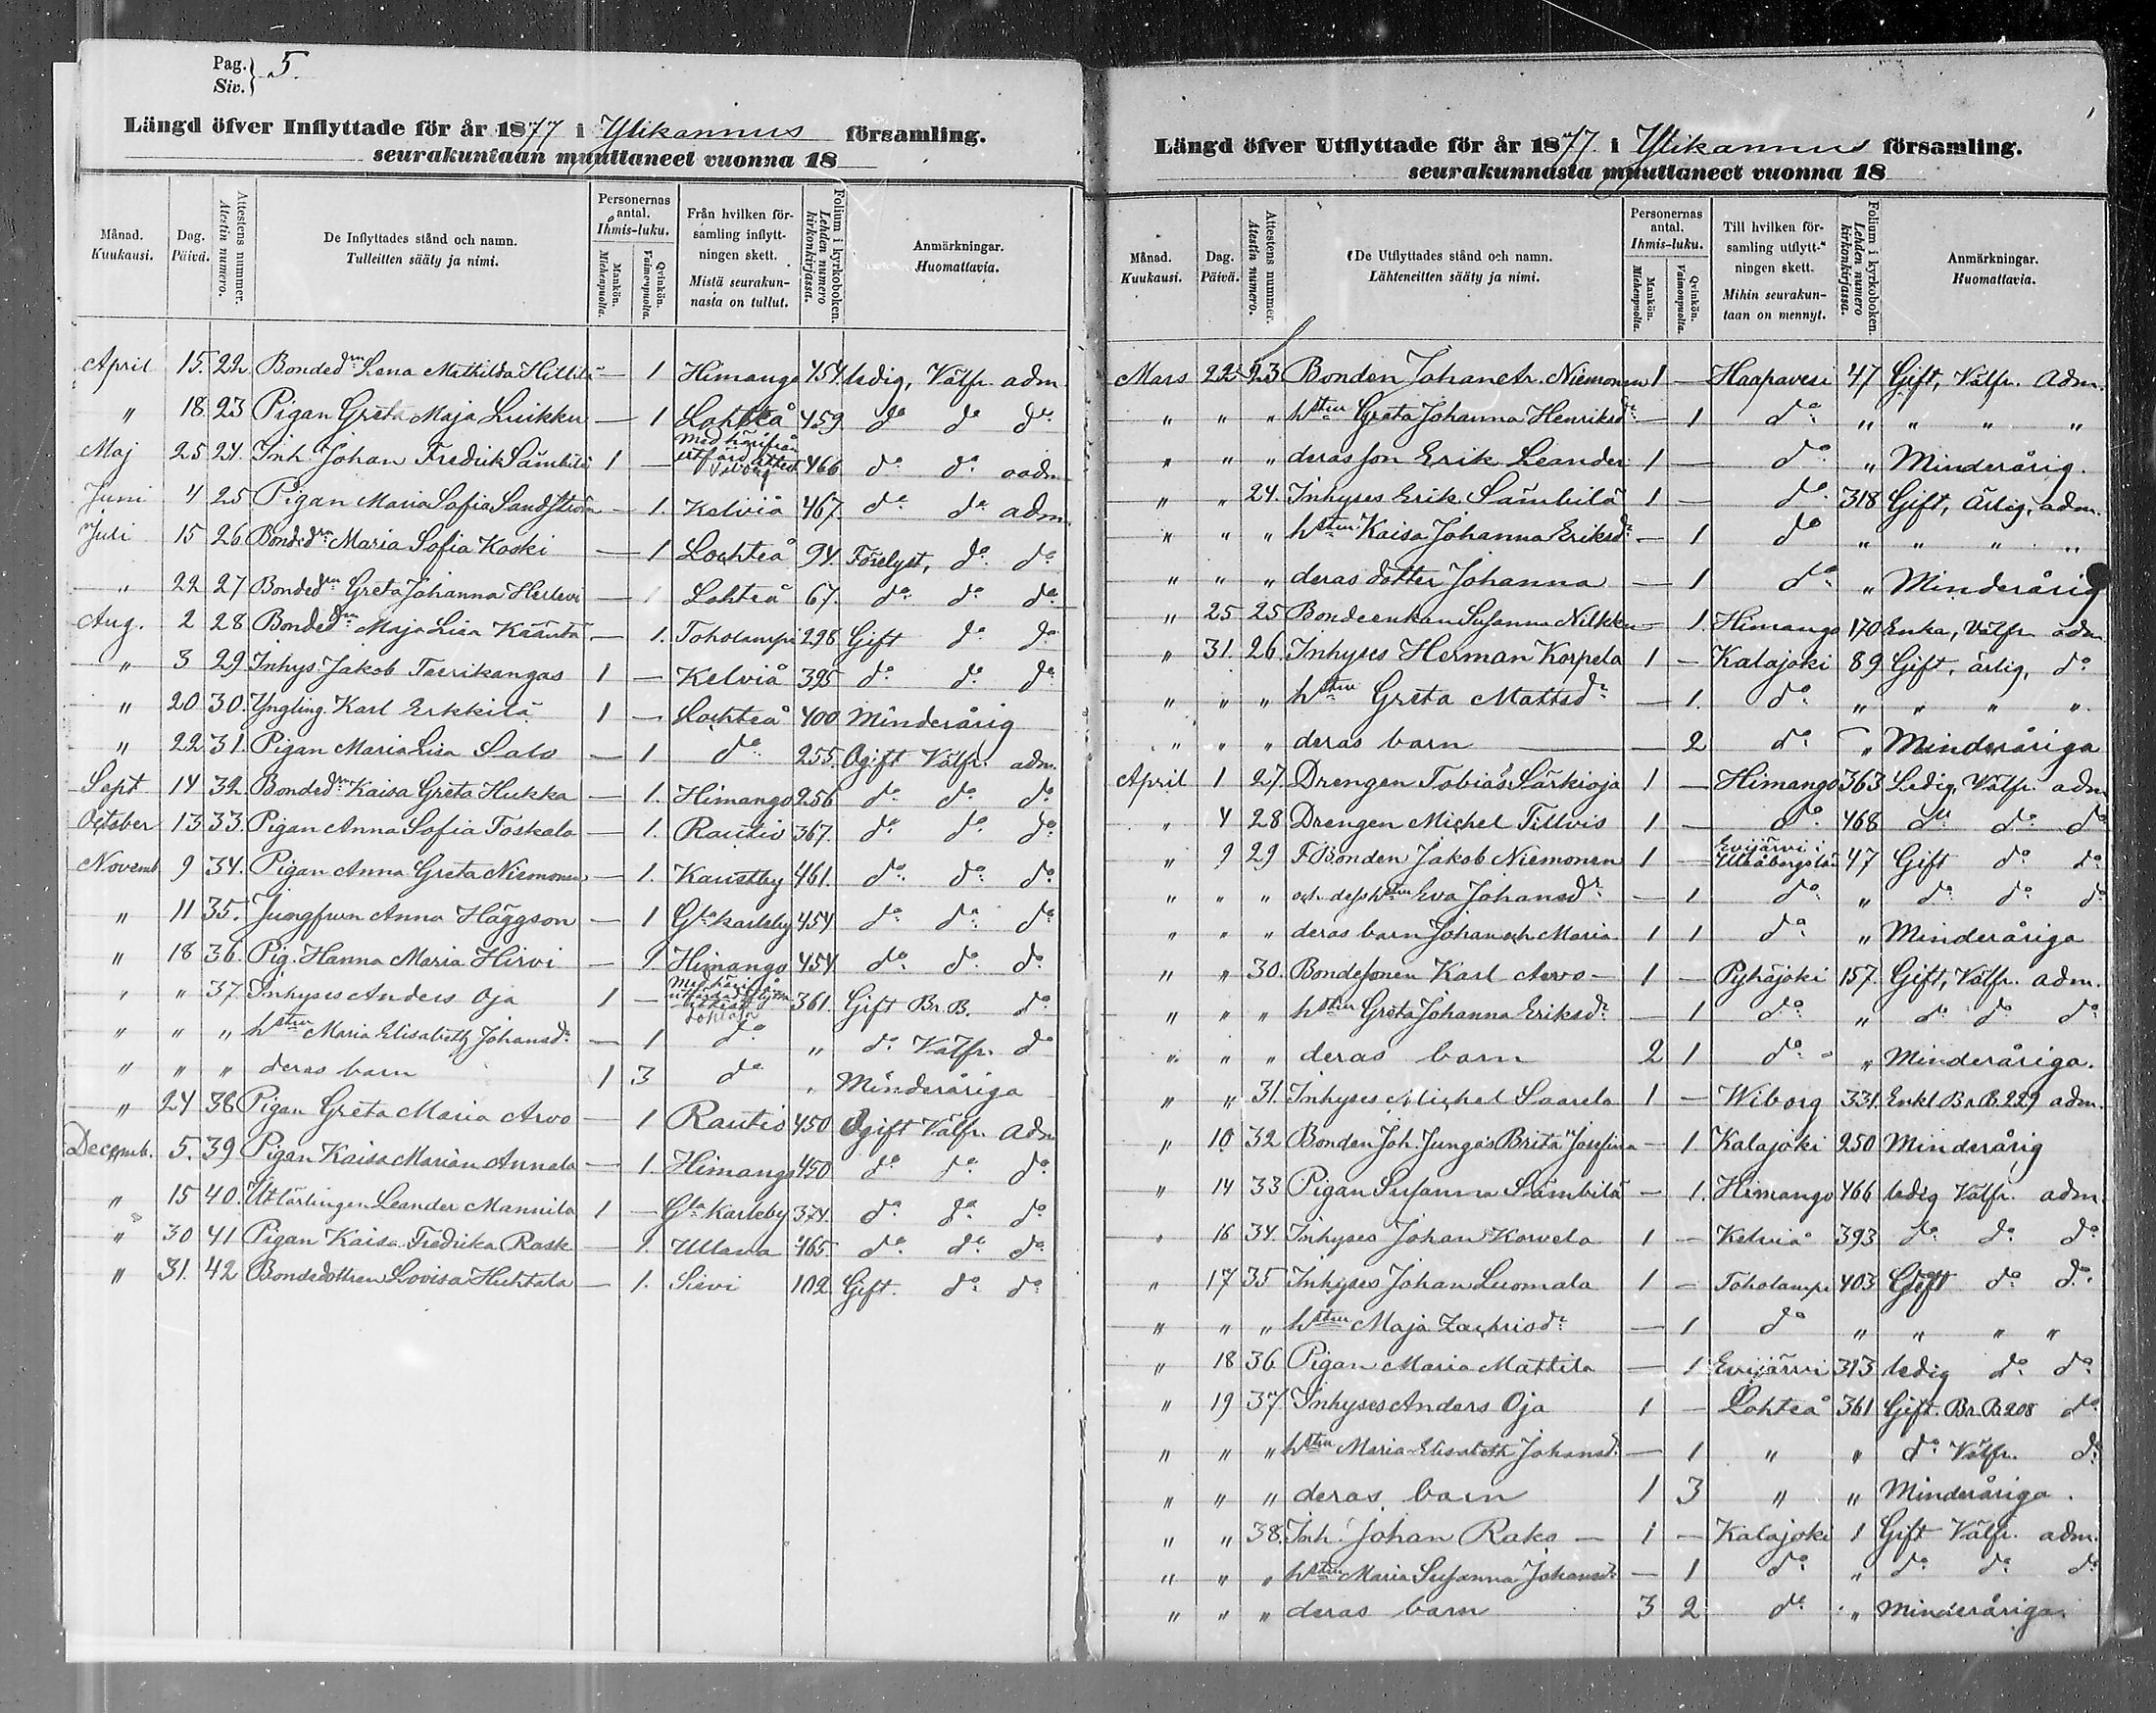 Pag. } 5.
Siv. }
Längd öfver Inflyttade för år 1877 i Ylikannus församling.
seurakuntaan muuttaneet vuonna 18
Månad. Kuukausi. | Dag. Päivä. | Attestens nummer. Atestin numero. | De Inflyttades stånd och namn. Tulleitten sääty ja nimi. | Personernas antal. Ihmis-luku. Mankön. Miehenpuolia. | Qvinkön. Vaimonpuolia. | Från hvilken församling inflyttningen skett. Mistä seurakunnasta on tullut. | Folium i kyrkoboken. Lehden numero kirkonkirjassa. | Anmärkningar. Huomattavia.
April 15. 22 Bondedrn Lena Mathilda Hillilä — 1 Himango 454. ledig, Välfr. adm
" 18. 23 Pigan Greta Maja Luikku — 1 Lohteå 459 do do do
Maj 25 24. Inh. Johan Fredrik Sämbilä 1 — Med härifrån utfärd. attest Viborg 466 do do oadm
Juni 4 25 Pigan Maria Sofia Sandström — 1. Kelviå 467. do do adm.
Juli 15 26 Bondedrn Maria Sofia Koski — 1 Lochteå 94. Förelyst, do do
" 22 27 Bondedrn Greta Johanna Herlevi — 1 Lohteå 67. do do do
Aug. 2 28 Bondedrn Maja Lisa Kääntä — 1. Toholampi 298 Gift do do
" 3 29 Inhys. Jakob Teerikangas 1 — Kelviå 395 do do do
" 20 30. Yngling Karl Erkkilä 1 — Lochteå 400 Minderårig
" 22 31. Pigan Maria Lisa Salo — 1 do 255. Ogift Välfr. adm.
Sept 14 32 Bondedrn Kaisa Greta Hukka — 1. Himango 256 do do do
October 13 33. Pigan Anna Sofia Toskala — 1. Rautio 367. do do do
Novemb 9 34. Pigan Anna Greta Niemonen — 1. Kaustby 461. do do do
" 11 35. Jungfrun Anna Häggson — 1 Gla Karleby 454 do do do
" 18 36. Pig. Hanna Maria Hirvi — 1 Himango 454 do do do
" " 37 Inhyses Anders Oja 1 — Med härifrån utfärdad flyttn. attest Lohteå 361. Gift Br. B. do
" " " hstru Maria Elisabeth Johansdr — 1 do " do Välfr. do
" " " deras barn 1 3 do " Minderåriga
" 24 38 Pigan Greta Maria Arvo — 1 Rautio 450 Ogift Välfr. adm
Decemb. 5. 39 Pigan Kaisa Maria Annala — 1 Himango 450 do do do
" 15 40. Utlärlingen Leander Mannila 1 — Gla Karleby 374. do do do
" 30 41 Pigan Kaisa Fredrika Rask — 1. Ullava 465. do do do
" 31. 42 Bondedottren Lovisa Huhtala — 1. Sievi 102 Gift. do do
Längd öfver Utflyttade för år 1877 i Ylikannus församling.
seurakunnasta muuttaneet vuonna 18
Månad. Kuukausi. | Dag. Päivä. | Attestens nummer. Atestin numero. | De Utflyttades stånd och namn. Lähteneitten sääty ja nimi. | Personernas antal. Ihmis-luku. Mankön. Miehenpuolia. | Qvinkön. Vaimonpuolia. | Till hvilken församling utflyttningen skett. Mihin seurakuntaan on mennyt. | Folium i kyrkoboken. Lehden numero kirkonkirjassa. | Anmärkningar. Huomattavia.
Mars 22 23 Bonden Johan Niemonen 1 — Haapavesi 47 Gift, Välfr. Adm.
" " " hstru Greta Johanna Henriksdr — 1 do " " " "
" " " deras son Erik Leander 1 — do " Minderårig.
" " 24. Inhyses Erik Sämbilä 1 — do 318 Gift, Ärlig, adm.
" " " hstru Kaisa Johanna Eriksdr — 1 do " " " "
" " " deras dotter Johanna — 1 do " Minderårig
" 25 25 Bondeenkan Susanna Nilkku — 1. Himango 170 Enka, Välfr adm
" 31. 26. Inhyses Herman Korpela 1 — Kalajoki 89 Gift, ärlig, do
" " " hstru Greta Mattsdr — 1. do " " " "
" " " deras barn — 2 do " Minderåriga
April 1 27. Drengen Tobias Särkioja 1 — Himango 363 Ledig, Välfr. adm
" 4 28 Drengen Michel Tillvis 1 — do 468 do do do
" 9 29 F. Bonden Jakob Niemonen 1 — Evijärvi i Uleåborgs län 47 Gift do do
" " " och dess hstru Eva Johansdr — 1 do " do do do
" " " deras barn Johan och Maria 1 1 do " Minderåriga
" " 30. Bondesonen Karl Arvo — 1 — Pyhäjoki 157. Gift, Välfr. adm.
" " " hstru Greta Johanna Eriksdr — 1 do " do do do
" " " deras barn 2 1 do " Minderåriga.
" " 31. Inhyses Michel Saarela 1 — Wiborg 331. Enkl Br. B. 229 adm.
" 10 32 Bonden Joh. Jungas Brita Josefina — 1. Kalajoki 250 Minderårig
" 14 33 Pigan Susanna Sämbilä — 1. Himango 466 ledig Välfr. adm.
" 16 34. Inhyses Johan Korvela 1 — Kelviå 393 do do do
" 17 35 Inhyses Johan Luomala 1 — Toholampi 403 Gift do do
" " " hstru Maja Zachrisdr — 1 do " " " "
" 18 36 Pigan Maria Mattila — 1 Evijärvi 313 ledig do do
" 19 37 Inhyses Anders Oja 1 — Lohteå 361 Gift. Br. B. 208 do
" " " hstru Maria Elisabeth Johansd. — 1 " " do Välfr. do
" " " deras barn 1 3 " " Minderåriga.
" " 38. Inh. Johan Rako — 1 — Kalajoki 1 Gift Välfr. adm.
" " " hstru Maria Susanna Johansdr — 1 do " do do do
" " " deras barn 3 2 do " Minderåriga.